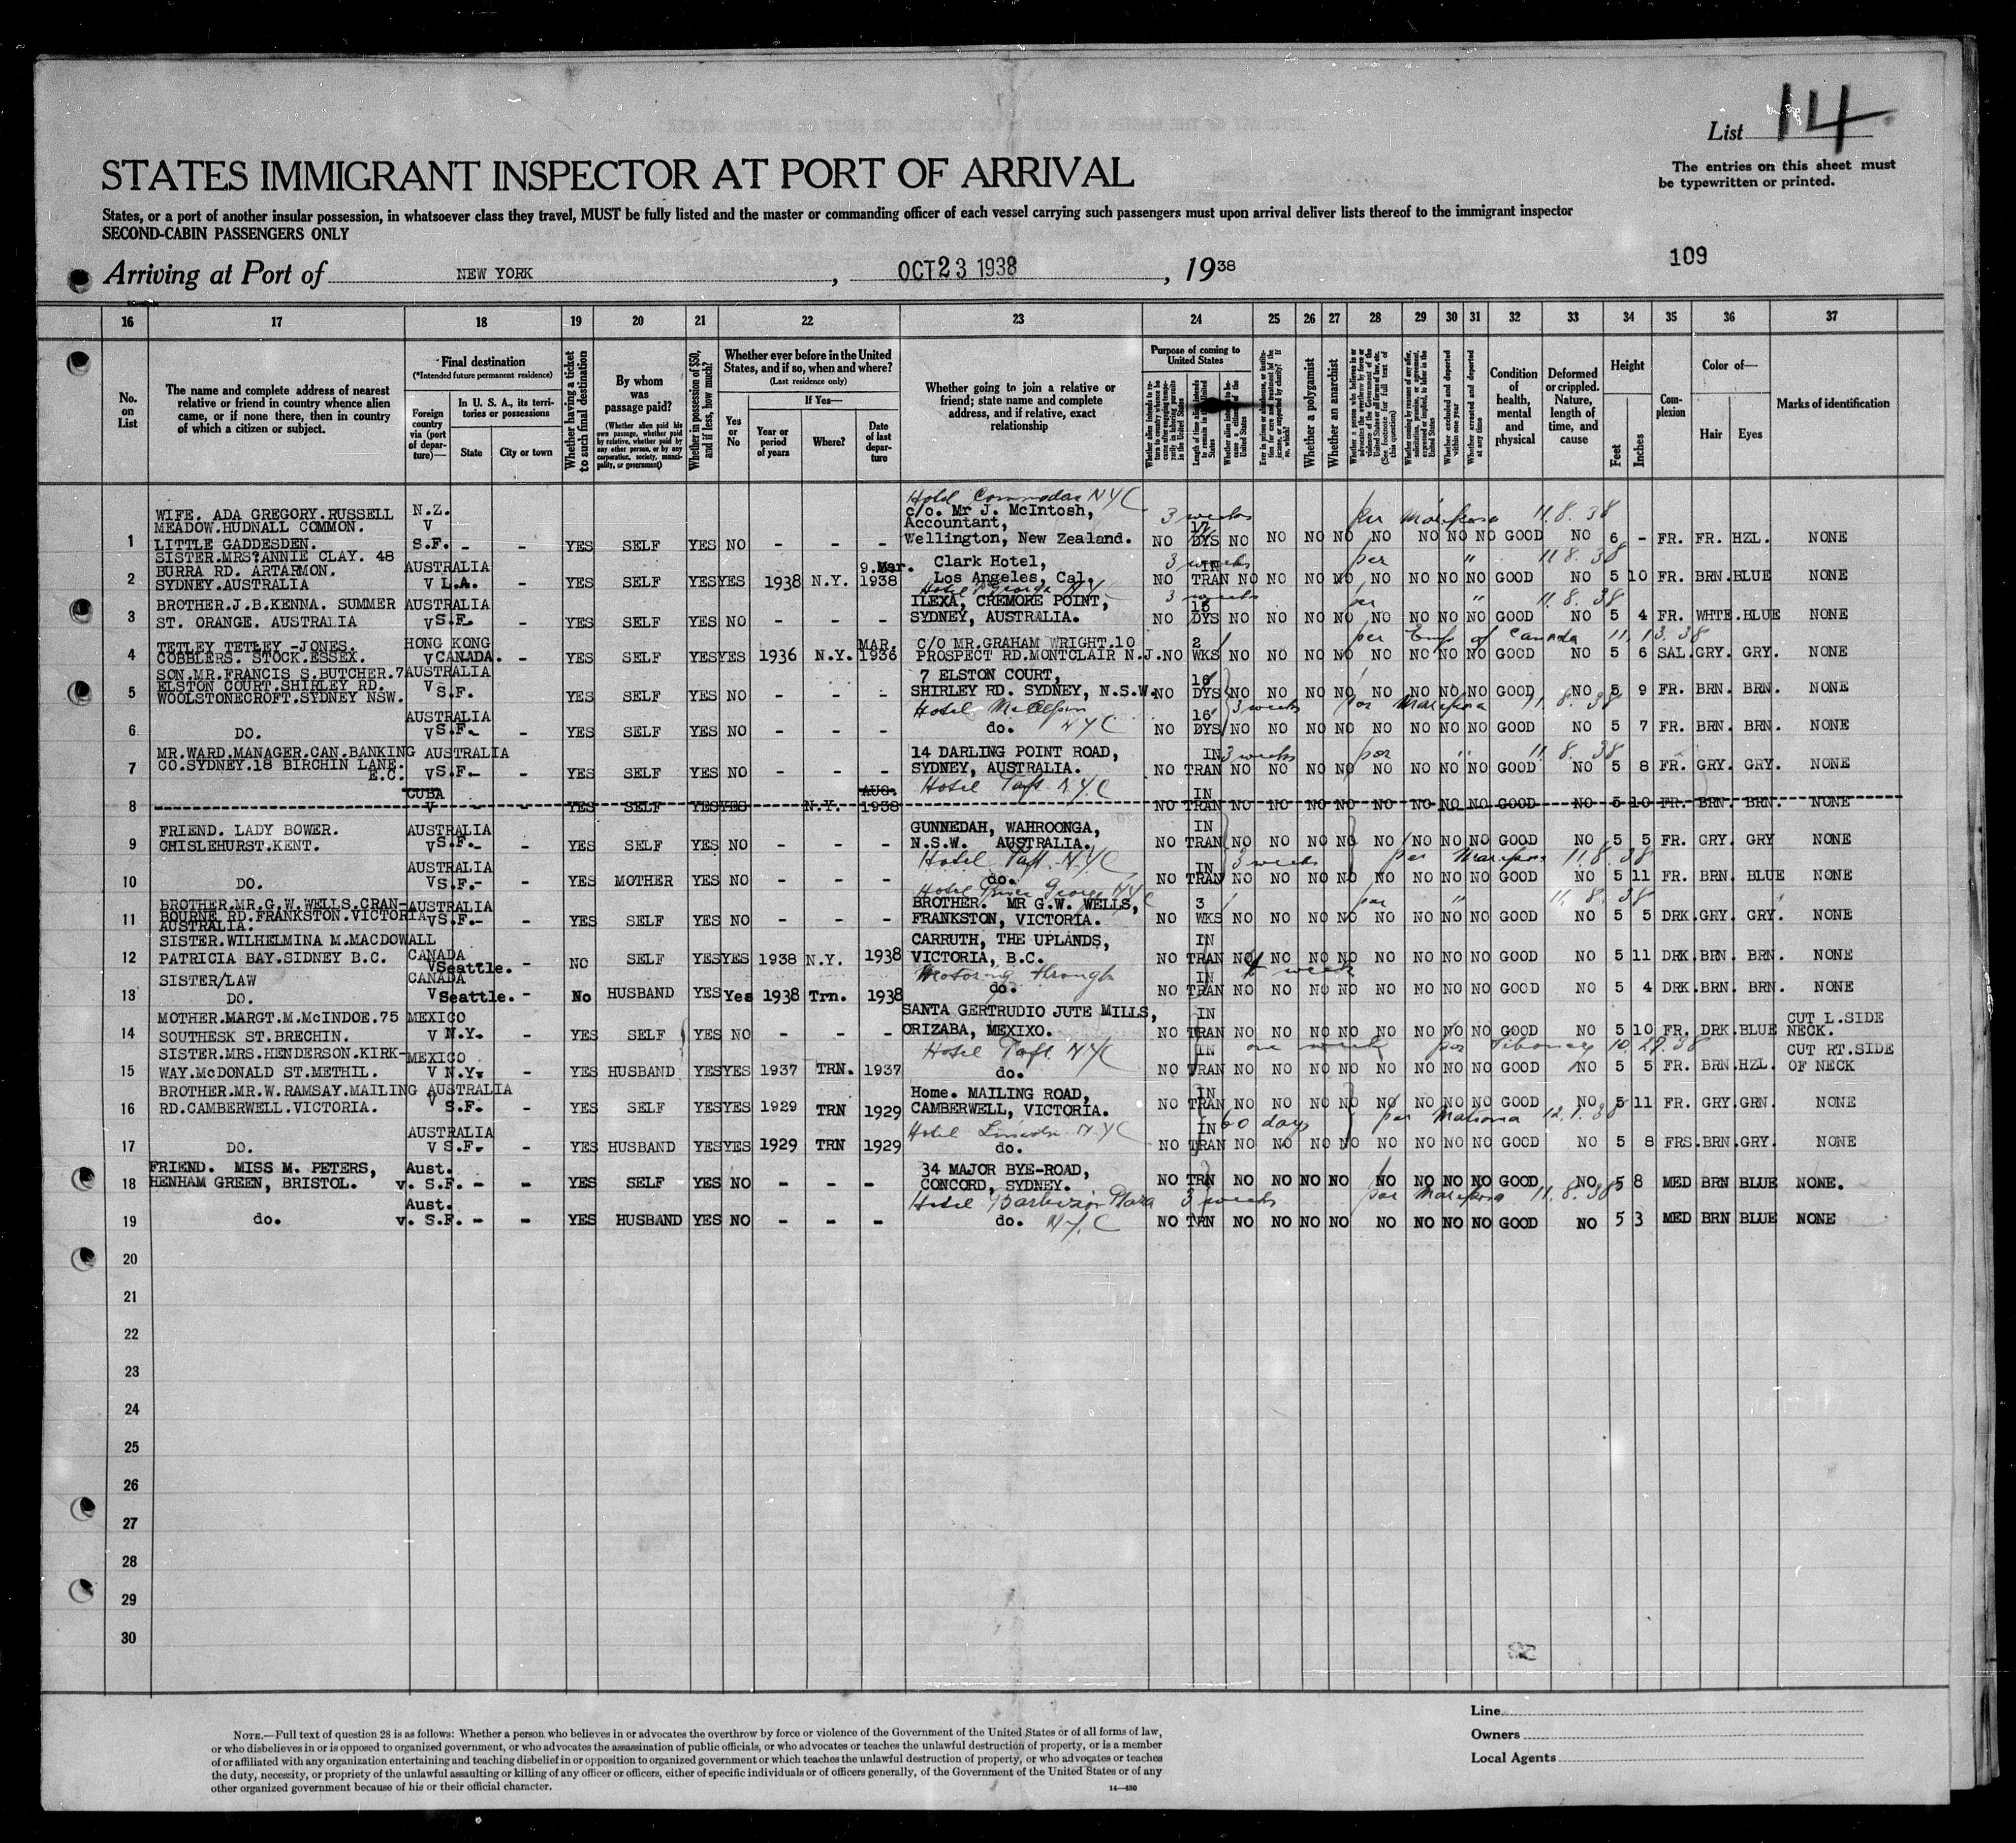 List 14
The entries on this sheet must
be typewritten or printed.
STATES IMMIGRANT INSPECTOR AT PORT OF ARRIVAL
States, or a port of another insular possession, in whatsoever class they travel, MUST be fully listed and the master or commanding officer of each vessel carrying such passengers must upon arrival deliver lists thereof to the immigrant inspector
SECOND-CABIN PASSENGERS ONLY
109
Arriving at Port of NEW YORK, OCT 23 1938, 1938
16 17 18 19 20 21 22 23 24 25 26 27 28 29 30 31 32 33 34 35 36 37
No. on List
The name and complete address of nearest relative or friend in country whence alien came, or if none there, then in country of which a citizen or subject.
Final destination
(*Intended future permanent residence)
Foreign country via (port of departure)—
In U. S. A., its territories or possessions
State
City or town
Whether having a ticket to such final destination
By whom was passage paid?
(Whether alien paid his own passage, whether paid by relative, whether paid by any other person, or by any corporation, society, municipality, or government)
Whether in possession of $50, and if less, how much?
Whether ever before in the United States, and if so, when and where?
(Last residence only)
Yes or No
If Yes—
Year or period of years
Where?
Date of last departure
Whether going to join a relative or friend; state name and complete address, and if relative, exact relationship
Purpose of coming to United States
Whether a polygamist
Whether an anarchist
Condition of health, mental and physical
Deformed or crippled. Nature, length of time, and cause
Height
Feet
Inches
Complexion
Color of—
Hair
Eyes
Marks of identification
Hotel Commodore NYC
1 WIFE. ADA GREGORY.RUSSELL MEADOW.HUDNALL COMMON. LITTLE GADDESDEN. N.Z. V S.F. - - YES SELF YES NO - - - c/o. Mr J. McIntosh, Accountant, Wellington, New Zealand. NO 17 DYS NO NO NO NO NO NO NO NO GOOD NO 6 - FR. FR. HZL. NONE
3 weeks per Mariposa 11.8.38
2 SISTER.MRS?ANNIE CLAY. 48 BURRA RD. ARTARMON. SYDNEY.AUSTRALIA AUSTRALIA V L.A. - YES SELF YES YES 1938 N.Y. 9.Mar. 1938 Clark Hotel, Los Angeles, Cal. NO IN TRAN NO NO NO NO NO NO NO NO GOOD NO 5 10 FR. BRN. BLUE NONE
3 weeks per " 11.8.38
3 BROTHER.J.B.KENNA. SUMMER ST. ORANGE. AUSTRALIA AUSTRALIA V S.F. - YES SELF YES NO - - - ILEXA, CREMORE POINT, SYDNEY, AUSTRALIA. NO 15 DYS NO NO NO NO NO NO NO NO GOOD NO 5 4 FR. WHTE. BLUE NONE
3 weeks per " 11.8.38
4 TETLEY TETLEY -JONES. COBBLERS. STOCK.ESSEX. HONG KONG V CANADA. - YES SELF YES YES 1936 N.Y. MAR. 1936 C/O MR.GRAHAM WRIGHT.10 PROSPECT RD.MONTCLAIR N.J. NO 2 WKS NO NO NO NO NO NO NO NO GOOD NO 5 6 SAL. GRY. GRY. NONE
per Emp of Canada 11.13.38
5 SON.MR.FRANCIS S.BUTCHER.7 ELSTON COURT.SHIRLEY RD. WOOLSTONECROFT.SYDNEY NSW. AUSTRALIA V S.F. - YES SELF YES NO - - - 7 ELSTON COURT, SHIRLEY RD. SYDNEY, N.S.W. NO 16 DYS NO NO NO NO NO NO NO NO GOOD NO 5 9 FR. BRN. BRN. NONE
Hotel McAlpin NYC 3 weeks per Mariposa 11.8.38
6 DO. AUSTRALIA V S.F. - YES SELF YES NO - - - do. 16 DYS NO NO NO NO NO NO NO NO GOOD NO 5 7 FR. BRN. BRN. NONE
7 MR.WARD.MANAGER.CAN.BANKING CO.SYDNEY.18 BIRCHIN LANE. E.C. AUSTRALIA V S.F. - - YES SELF YES NO - - - 14 DARLING POINT ROAD, SYDNEY, AUSTRALIA. NO IN TRAN NO NO NO NO NO NO NO NO GOOD NO 5 8 FR. GRY. GRY. NONE
3 weeks per " 11.8.38
Hotel Taft NYC
8 CUBA V - - YES SELF YES YES N.Y. AUG. 1938 NO IN TRAN NO NO NO NO NO NO NO NO GOOD NO 5 10 FR. BRN. BRN. NONE
9 FRIEND. LADY BOWER. CHISLEHURST.KENT. AUSTRALIA V S.F. - - YES SELF YES NO - - - GUNNEDAH, WAHROONGA, N.S.W. AUSTRALIA. NO IN TRAN NO NO NO NO NO NO NO NO GOOD NO 5 5 FR. GRY. GRY NONE
Hotel Taft NYC 3 weeks per Mariposa 11.8.38
10 DO. AUSTRALIA V S.F. - - YES MOTHER YES NO - - - do. NO IN TRAN NO NO NO NO NO NO NO NO GOOD NO 5 11 FR. BRN. BLUE NONE
Hotel Prince George NYC
11 BROTHER.MR.G.W.WELLS.CRAN-BOURNE RD.FRANKSTON.VICTORIA AUSTRALIA. AUSTRALIA V S.F. - - YES SELF YES NO - - - BROTHER. MR G.W. WELLS, FRANKSTON, VICTORIA. NO 3 WKS NO NO NO NO NO NO NO NO GOOD NO 5 5 DRK. GRY. GRY. NONE
per " 11.8.38
12 SISTER.WILHELMINA M.MACDOWALL PATRICIA BAY.SIDNEY B.C. CANADA V Seattle. - NO SELF YES YES 1938 N.Y. 1938 CARRUTH, THE UPLANDS, VICTORIA, B.C. NO IN TRAN NO NO NO NO NO NO NO NO GOOD NO 5 11 DRK. BRN. BRN. NONE
Motoring through week
13 SISTER/LAW DO. CANADA V Seattle. - No HUSBAND YES Yes 1938 Trn. 1938 do. NO IN TRAN NO NO NO NO NO NO NO NO GOOD NO 5 4 DRK. BRN. BRN. NONE
14 MOTHER.MARGT.M.McINDOE.75 SOUTHESK ST.BRECHIN. MEXICO V N.Y. - YES SELF YES NO - - - SANTA GERTRUDIO JUTE MILLS, ORIZABA, MEXIXO. NO IN TRAN NO NO NO NO NO NO NO NO GOOD NO 5 10 FR. DRK. BLUE CUT L.SIDE NECK.
Hotel Taft NYC one week per 10.27.38
15 SISTER.MRS.HENDERSON.KIRK-WAY.McDONALD ST.METHIL. MEXICO V N.Y. - YES HUSBAND YES YES 1937 TRN. 1937 do. NO IN TRAN NO NO NO NO NO NO NO NO GOOD NO 5 5 FR. BRN. HZL. CUT RT.SIDE OF NECK
16 BROTHER.MR.W.RAMSAY.MAILING RD.CAMBERWELL.VICTORIA. AUSTRALIA V S.F. - YES SELF YES YES 1929 TRN 1929 Home. MAILING ROAD, CAMBERWELL, VICTORIA. NO IN TRAN NO NO NO NO NO NO NO NO GOOD NO 5 11 FR. GRY. GRN. NONE
Hotel Lincoln NYC 60 days per
17 DO. AUSTRALIA V S.F. - - YES HUSBAND YES YES 1929 TRN 1929 do. NO IN TRAN NO NO NO NO NO NO NO NO GOOD NO 5 8 FRS. BRN. GRY. NONE
18 FRIEND. MISS M. PETERS, HENHAM GREEN, BRISTOL. Aust. v. S.F. - - YES SELF YES NO - - - 34 MAJOR BYE-ROAD, CONCORD, SYDNEY. NO TRN NO NO NO NO NO NO NO NO GOOD NO 5 8 MED BRN BLUE NONE.
Hotel Barbizon Plaza NYC 3 weeks per Mariposa 11.8.38
19 do. Aust. v. S.F. - - YES HUSBAND YES NO - - - do. NO TRN NO NO NO NO NO NO NO NO GOOD NO 5 3 MED BRN BLUE NONE
20
21
22
23
24
25
26
27
28
29
30
NOTE.—Full text of question 28 is as follows: Whether a person who believes in or advocates the overthrow by force or violence of the Government of the United States or of all forms of law,
or who disbelieves in or is opposed to organized government, or who advocates the assassination of public officials, or who advocates or teaches the unlawful destruction of property, or is a member
of or affiliated with any organization entertaining and teaching disbelief in or opposition to organized government or which teaches the unlawful destruction of property, or who advocates or teaches
the duty, necessity, or propriety of the unlawful assaulting or killing of any officer or officers, either of specific individuals or of officers generally, of the Government of the United States or of any
other organized government because of his or their official character.
14—430
Line
Owners
Local Agents